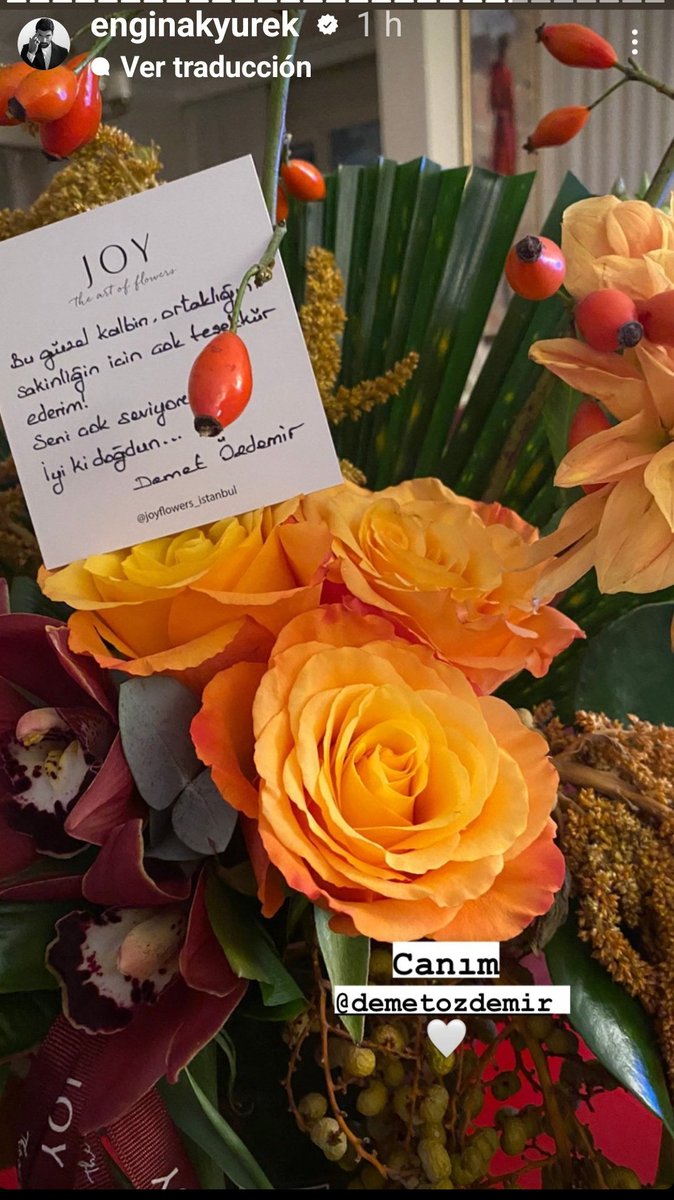 enginakyurek 1 h
Ver traducción
JOY
the art of flowers
Bu güzel kalbin, ortaklığın
sakinliğin için çok teşekkür
ederim!
Seni çok seviyor
İyi ki doğdun...
Demet Özdemir
@joyflowers_istanbul
Canım
@demetozdemir
JOY
the